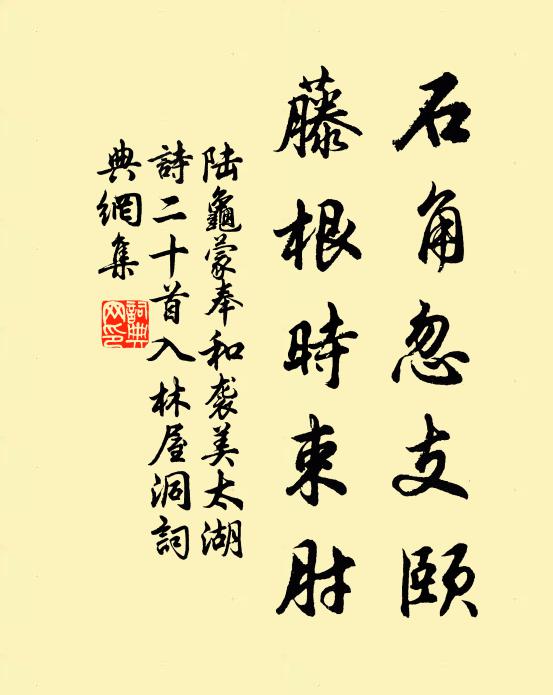 石角忽支頤
藤根時束肘
陆龜蒙奉和袭美太湖
詩二十首入林屋洞詞
典網集
詞典
网印